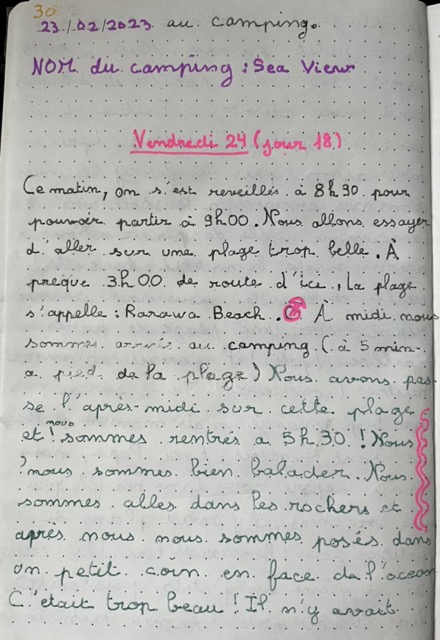 30
23/02/2023 au camping.
NOM du camping : Sea View
Vendredi 24 (jour 18)
Ce matin, on s'est reveillés à 8h30 pour
pouvoir partir à 9h00. Nous allons essayer
d'aller sur une plage trop belle. À
preque 3h00 de route d'ici. La plage
s'appelle : Rarawa Beach. À midi nous
sommes arrivés au camping (à 5 min
a pied de la plage) Nous avons pas-
se l'après-midi sur cette plage
et nous sommes rentrés a 5h30 ! Nous
nous sommes bien balader. Nous
sommes alles dans les rochers et
après nous nous sommes posés dans
un petit coin en face de l'ocean
C'était trop beau ! Il n'y avait